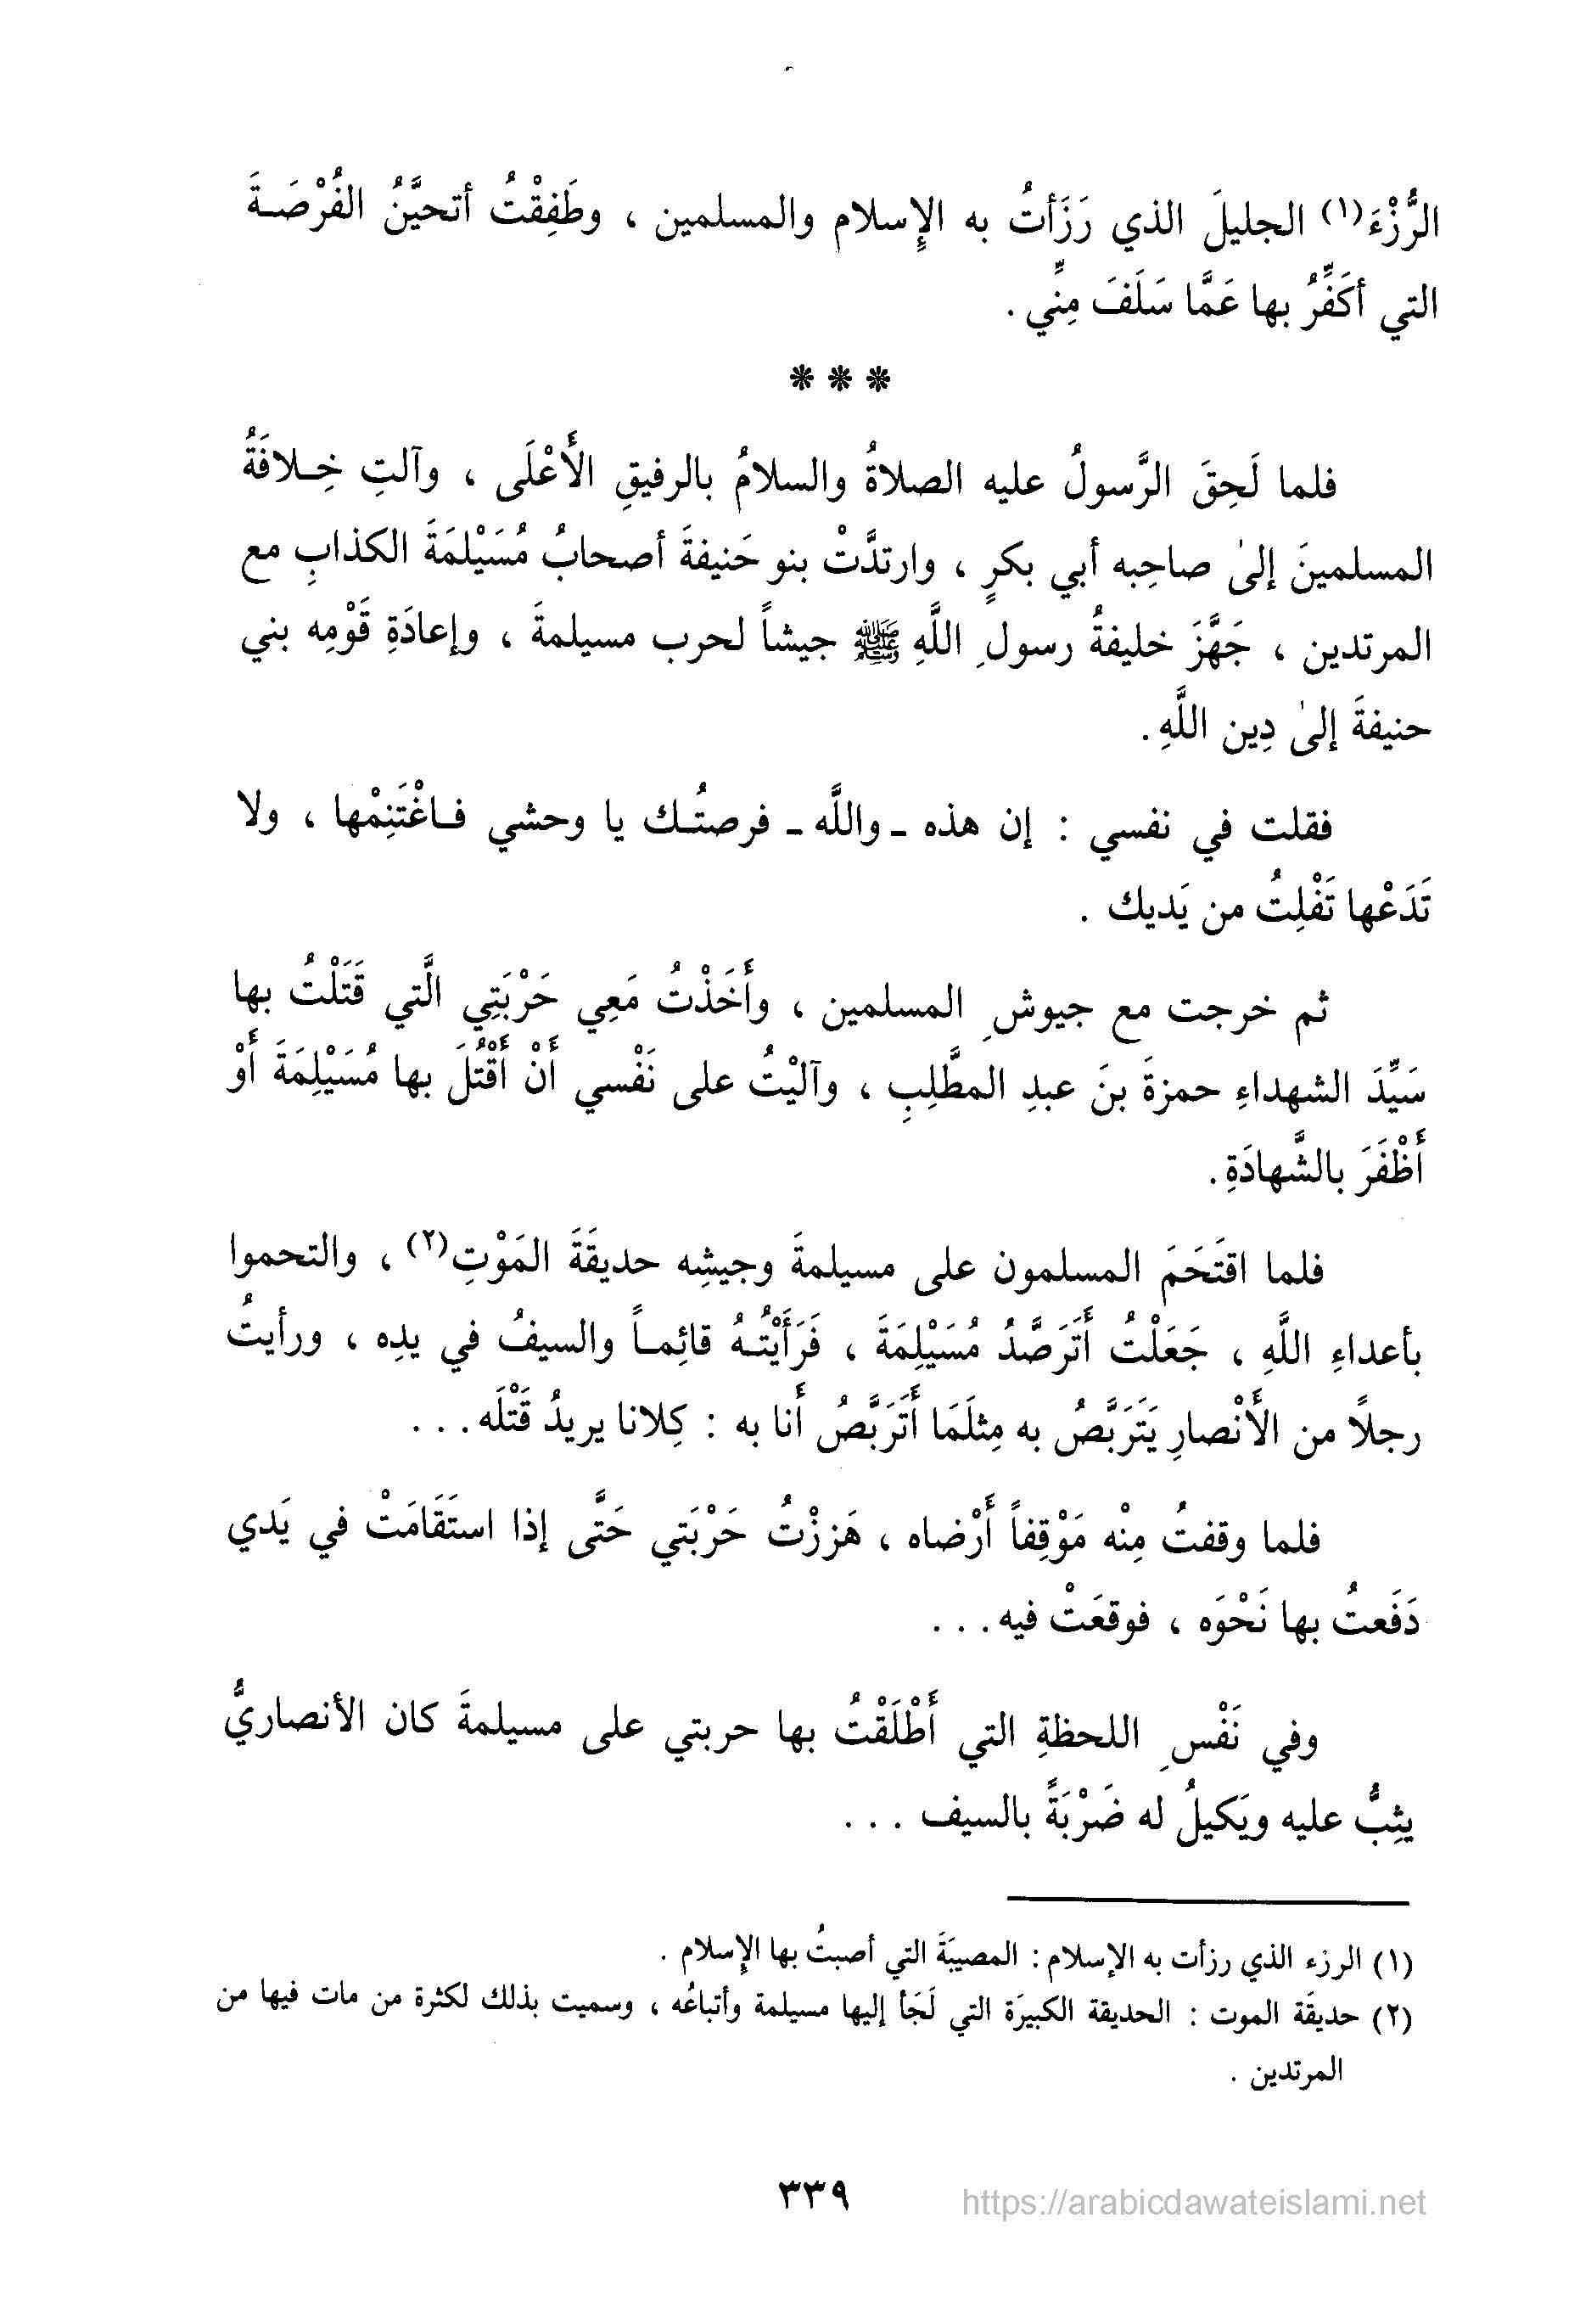 الرُّزْءَ(١) الجليلَ الذي رَزَأتُ به الإِسلام والمسلمين ، وطَفِقْتُ أتحيَّنُ الفُرْصَـةَ
التي أكَفِّرُ بها عَمَّا سَلَفَ مِنِّي .
* * *
فلما لَحِقَ الرَّسولُ عليه الصلاةُ والسلامُ بالرفيقِ الأَعْلَى ، وآلتِ خِـلافَةُ
المسلمينَ إلىٰ صاحِبه أبي بكرٍ ، وارتدَّتْ بنو حَنيفةَ أصحابُ مُسَيْلمَةَ الكذابِ مع
المرتدين ، جَهَّزَ خليفةُ رسولِ اللَّهِ ﷺ جيشاً لحرب مسيلمةَ ، وإعادَةِ قَوْمِه بني
حنيفةَ إلىٰ دِين اللَّهِ .
فقلت في نفسي : إن هذه ـ واللَّه ـ فرصتُـك يا وحشي فـاغْتَنِمْها ، ولا
تَدَعْها تَفْلِتُ من يَديك .
ثم خرجت مع جيوشِ المسلمين ، وأَخَذْتُ مَعِي حَرْبَتِي الَّتي قَتَلْتُ بها
سَيِّدَ الشهداءِ حمزةَ بنَ عبدِ المطَّلِبِ ، وآليْتُ على نَفْسي أَنْ أَقْتُلَ بها مُسَيْلِمَةَ أَوْ
أَظْفَرَ بالشَّهادَةِ .
فلما اقتَحَمَ المسلمون على مسيلمةَ وجيشِه حديقَةَ المَوْتِ(٢) ، والتحموا
بأعداءِ اللَّهِ ، جَعَلْتُ أَتَرَصَّدُ مُسَيْلِمَةَ ، فَرَأَيْتُـهُ قائِمـاً والسيفُ في يدِه ، ورأيتُ
رجلاً من الأَنْصارِ يَتَرَبَّصُ به مِثلَمَا أَتَرَبَّصُ أَنا به : كِلانا يريدُ قَتْلَه . . .
فلما وقفتُ مِنْه مَوْقِفاً أَرْضاه ، هَززْتُ حَرْبَتي حَتَّى إذا استَقَامَتْ في يَدي
دَفَعتُ بها نَحْوَه ، فوقعَتْ فيه . . .
وفي نَفْسِ اللحظةِ التي أَطْلَقْتُ بها حربتي على مسيلمةَ كان الأنصاريُّ
يثِبُّ عليه ويَكيلُ له ضَرْبَةً بالسيف . . .
(١) الرزء الذي رزأت به الإسلام : المصيبَةَ التي أصبتُ بها الإِسلام .
(٢) حديقَة الموت : الحديقة الكبيرَة التي لَجَأ إليها مسيلمة وأتباعُه ، وسميت بذلك لكثرة من مات فيها من
المرتدين .
٣٣٩
https://arabicdawateislami.net